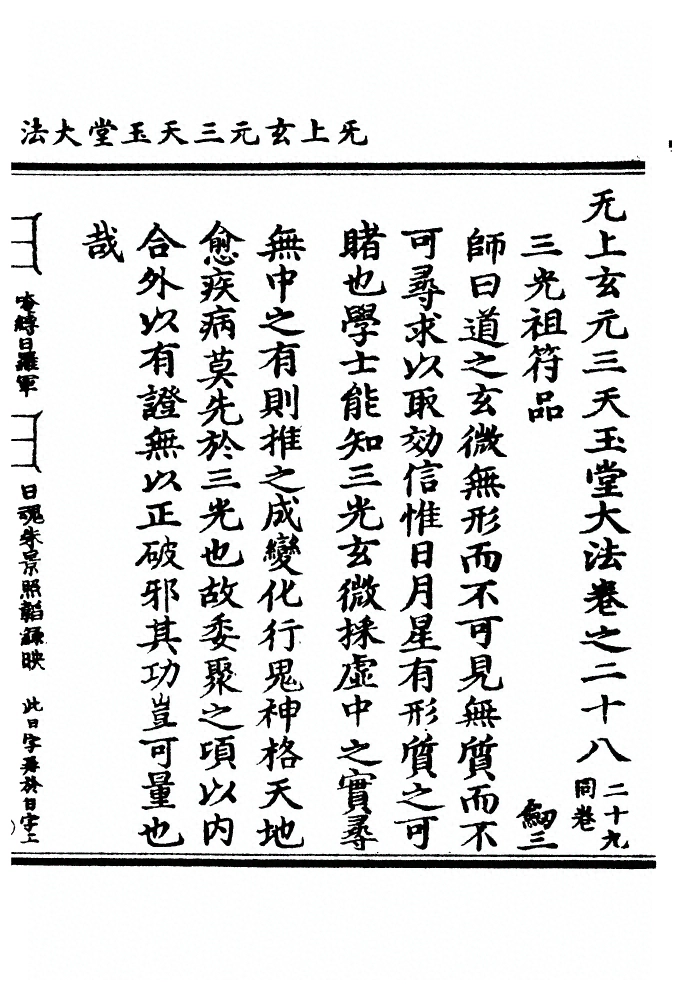 法大堂玉天三元玄上旡
旡上玄元三天玉堂大法卷之二十八
二十九
同卷
三光祖符品
師曰道之玄微無形而不可見無質而不
可尋求以取効信惟日月星有形質之可
睹也學士能知三光玄微採虛中之實尋
無中之有則推之成變化行鬼神格天地
愈疾病莫先於三光也故委聚之頃以内
合外以有證無以正破邪其功豈可量也
哉
縛日羅軍
日魂朱景照韜綠映
此日字
於日字上